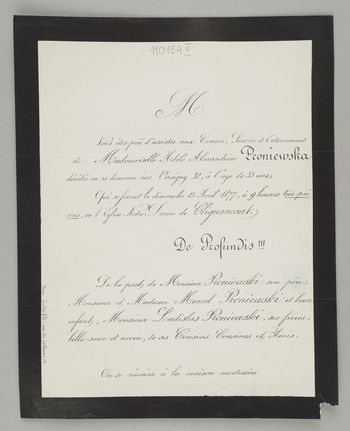 110154 II
M
Vous êtes prié d'assister aux Convoi, Service et Enterrement
de Mademoiselle Adèle Alexandrine Pioniewska
décédée en sa demeure rue 32, à l'âge de 33 ans,
Qui se feront le dimanche 15 Avril 1877, à 9 heures très pré-
cises, en l'Eglise Notre-Dame de Clignancourt,
De Profundis !!!
De la part, de Monsieur Pioniewski son père,
Monsieur et Madame Marcel Pioniewski et leur
enfant, Monsieur Ladislas Pioniewski, ses frères,
belle-sœur et neveu, de ses Cousins Cousines et Amis.
On se réunira à la maison mortuaire.